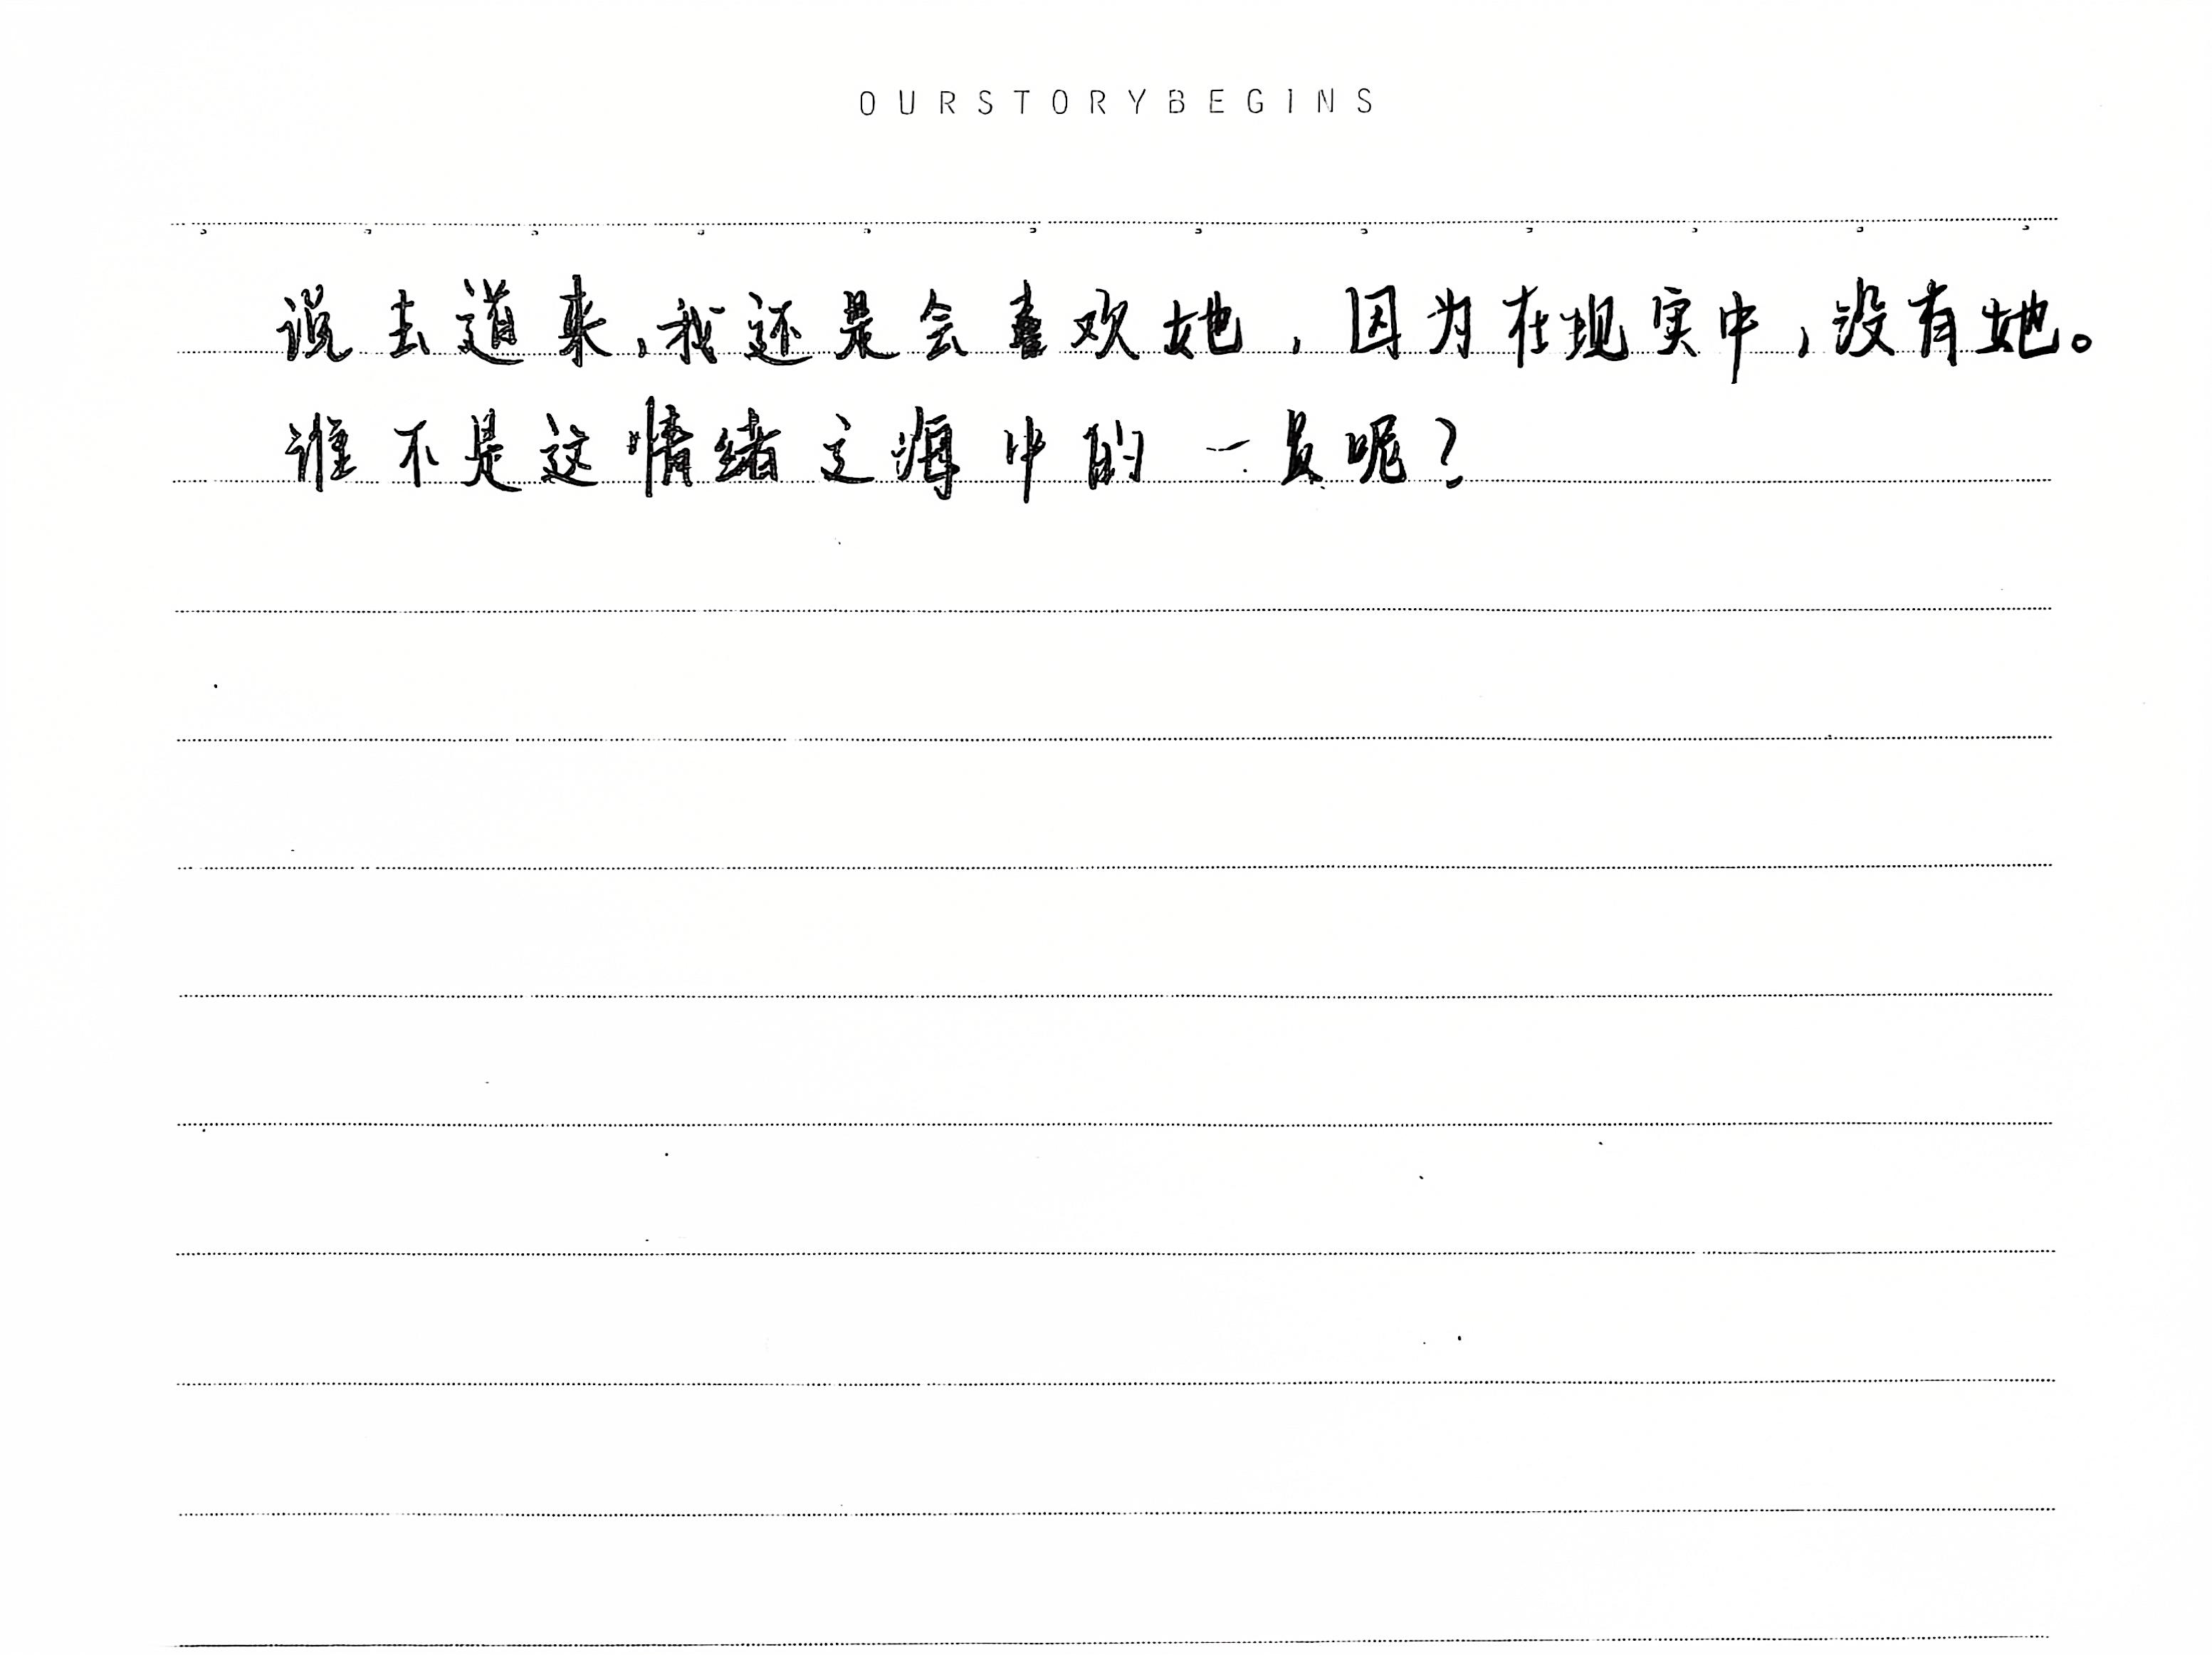 OURSTORYBEGINS
说去道来,我还是会喜欢她,因为在现实中,没有她。
谁不是这情绪之海中的一员呢?